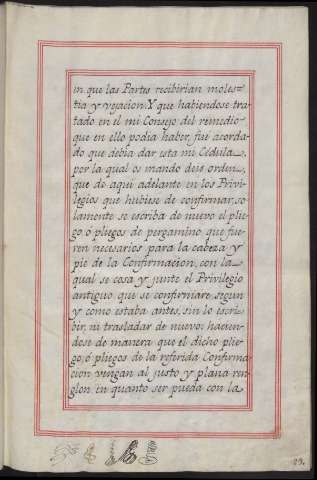 en que las Partes recibirian moles=
tia y vejacion. Y que habiendose tra-
tado en el mi Consejo del remedio
que en ello podia haber, fue acorda-
do que debia dar esta mi Cédula,
por la qual os mando deis orden
que de aqui adelante en los Privi-
legios que hubiese de confirmar, so-
lamente se escriba de nuevo el plie-
go, ó pliegos de pergamino que fue-
ren necesarios para la cabeza y
pie de la Confirmacion, con la
qual se cosa y junte el Privilegio
antiguo que se confirmare, segun
y como estaba antes, sin lo escri-
bir, ni trasladar de nuevo: hacien-
dose de manera que el dicho plie-
go, ó pliegos de la referida Confirma-
cion vengan al justo y plana ren-
glon en quanto ser pueda con la